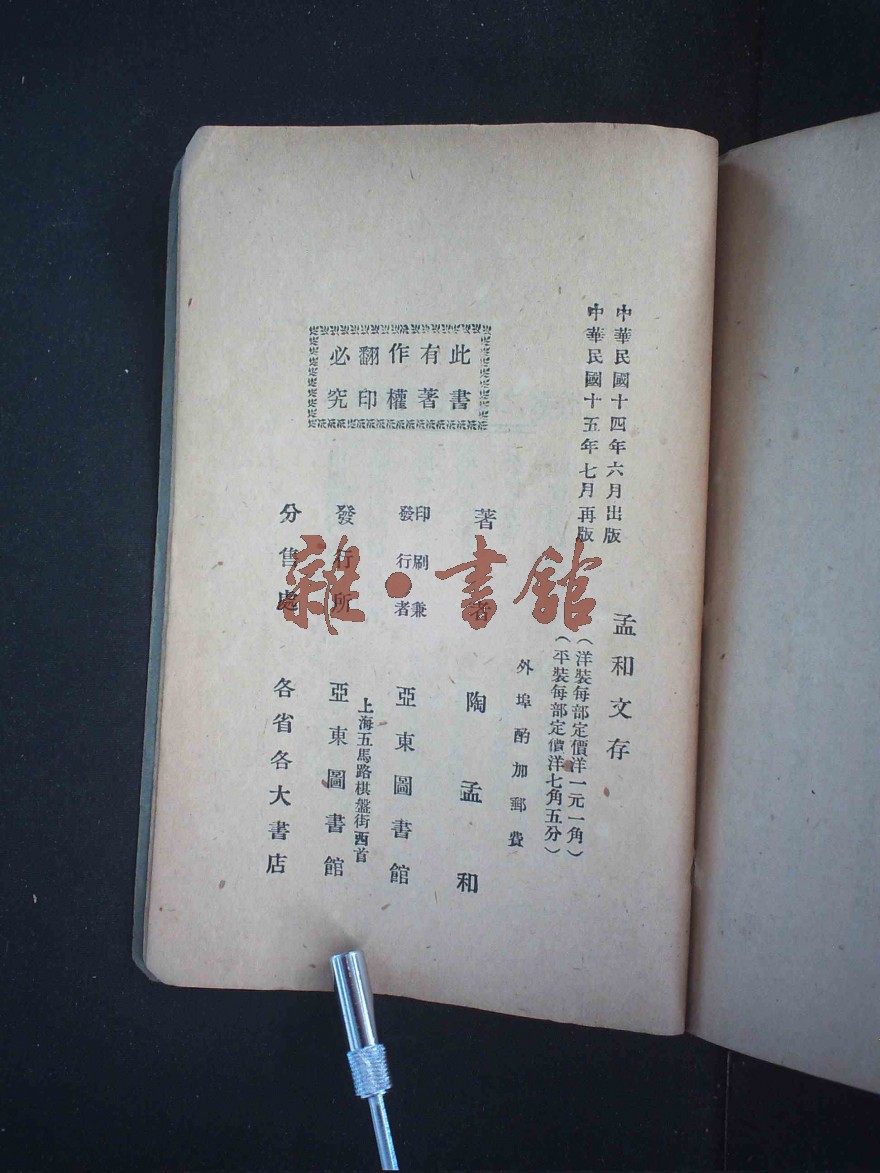 中華民國十四年六月出版
中華民國十五年七月再版
孟和文存
（洋裝每部定價洋一元一角）
（平裝每部定價洋七角五分）
外埠酌加郵費
著者 陶孟和
印刷兼
發行者 亞東圖書館
上海五馬路棋盤街西首
發行所 亞東圖書館
分售處 各省各大書店
此書
有著
作權
翻印
必究
雜·書館